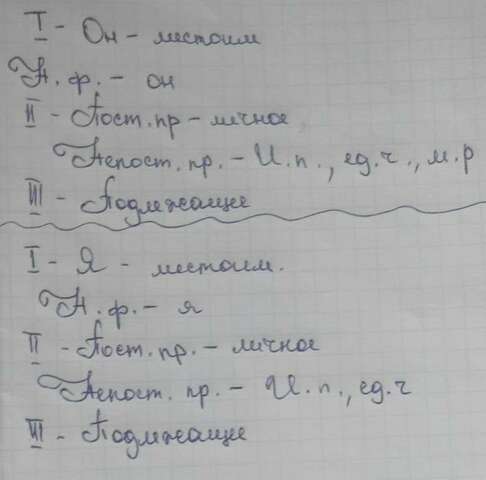 I - Он - местоим
Н. ф. - он
II - Пост. пр - личное
Непост. пр. - И. п., ед. ч., м. р
III - Подлежащее
I - Я - местоим.
Н. ф. - я
II - Пост. пр. - личное
Непост. пр. - И. п., ед. ч
III - Подлежащее